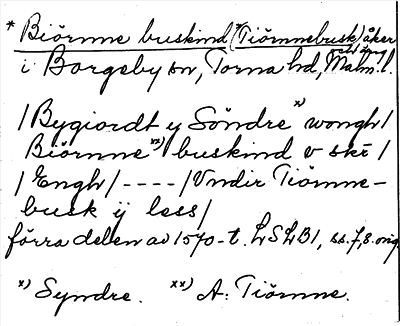 * Biörnne buskind (*Tiörnnebusk) åker
och äng
i Borgeby sn, Torna hd, Malm. l.
/Bygiordt y Söndre x) wongh/
Biörnne xx) buskind v skr /
/Engh/ ---- /Vndir Tiörnne-
busk ij less/
förra delen av 1570-t. LSLB1, ss. 7, 8. orig.
x) Syndre. xx) A: Tiörnne.